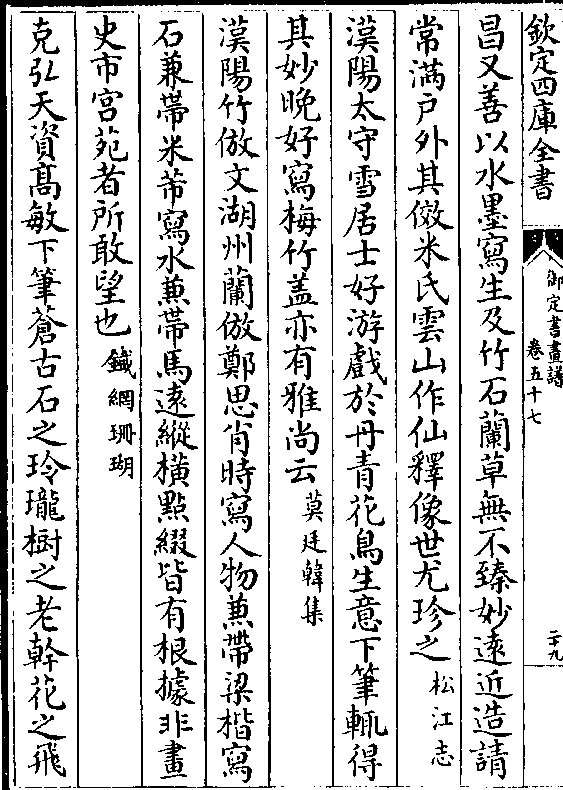 欽定四庫全書
御定書畫譜
卷五十七
二十九
昌又善以水墨寫生及竹石蘭草無不臻妙遠近造請
常滿户外其傚米氏雲山作仙釋像世尤珍之松江志
漢陽太守雪居士好游戲於丹青花鳥生意下筆輒得
其妙晚好寫梅竹盖亦有雅尚云莫廷韓集
漢陽竹倣文湖州蘭倣鄭思肖時寫人物兼帶梁楷寫
石兼帶米芾寫水兼帶馬遠縱横點綴皆有根據非畫
史市宫苑者所敢望也鐵網珊瑚
克弘天資髙敏下筆蒼古石之玲瓏樹之老幹花之飛